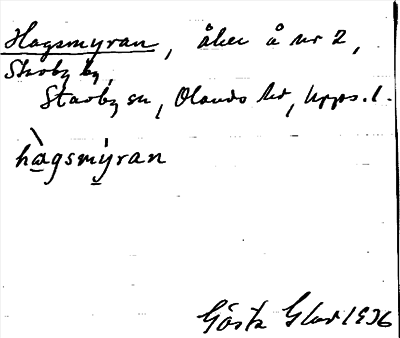 Hagsmyran, åker å nr 2,
Starby by,
Starby sn, Olands hd, Upps. l.
hagsmyran
Gösta Glad 1936